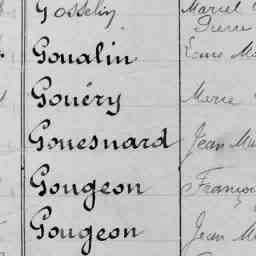 Gosselin Marcel
Pierre
Goualin
Gouéry Marie
Gouesnard Jean Ma
Gougeon Franço
Gougeon Jean M